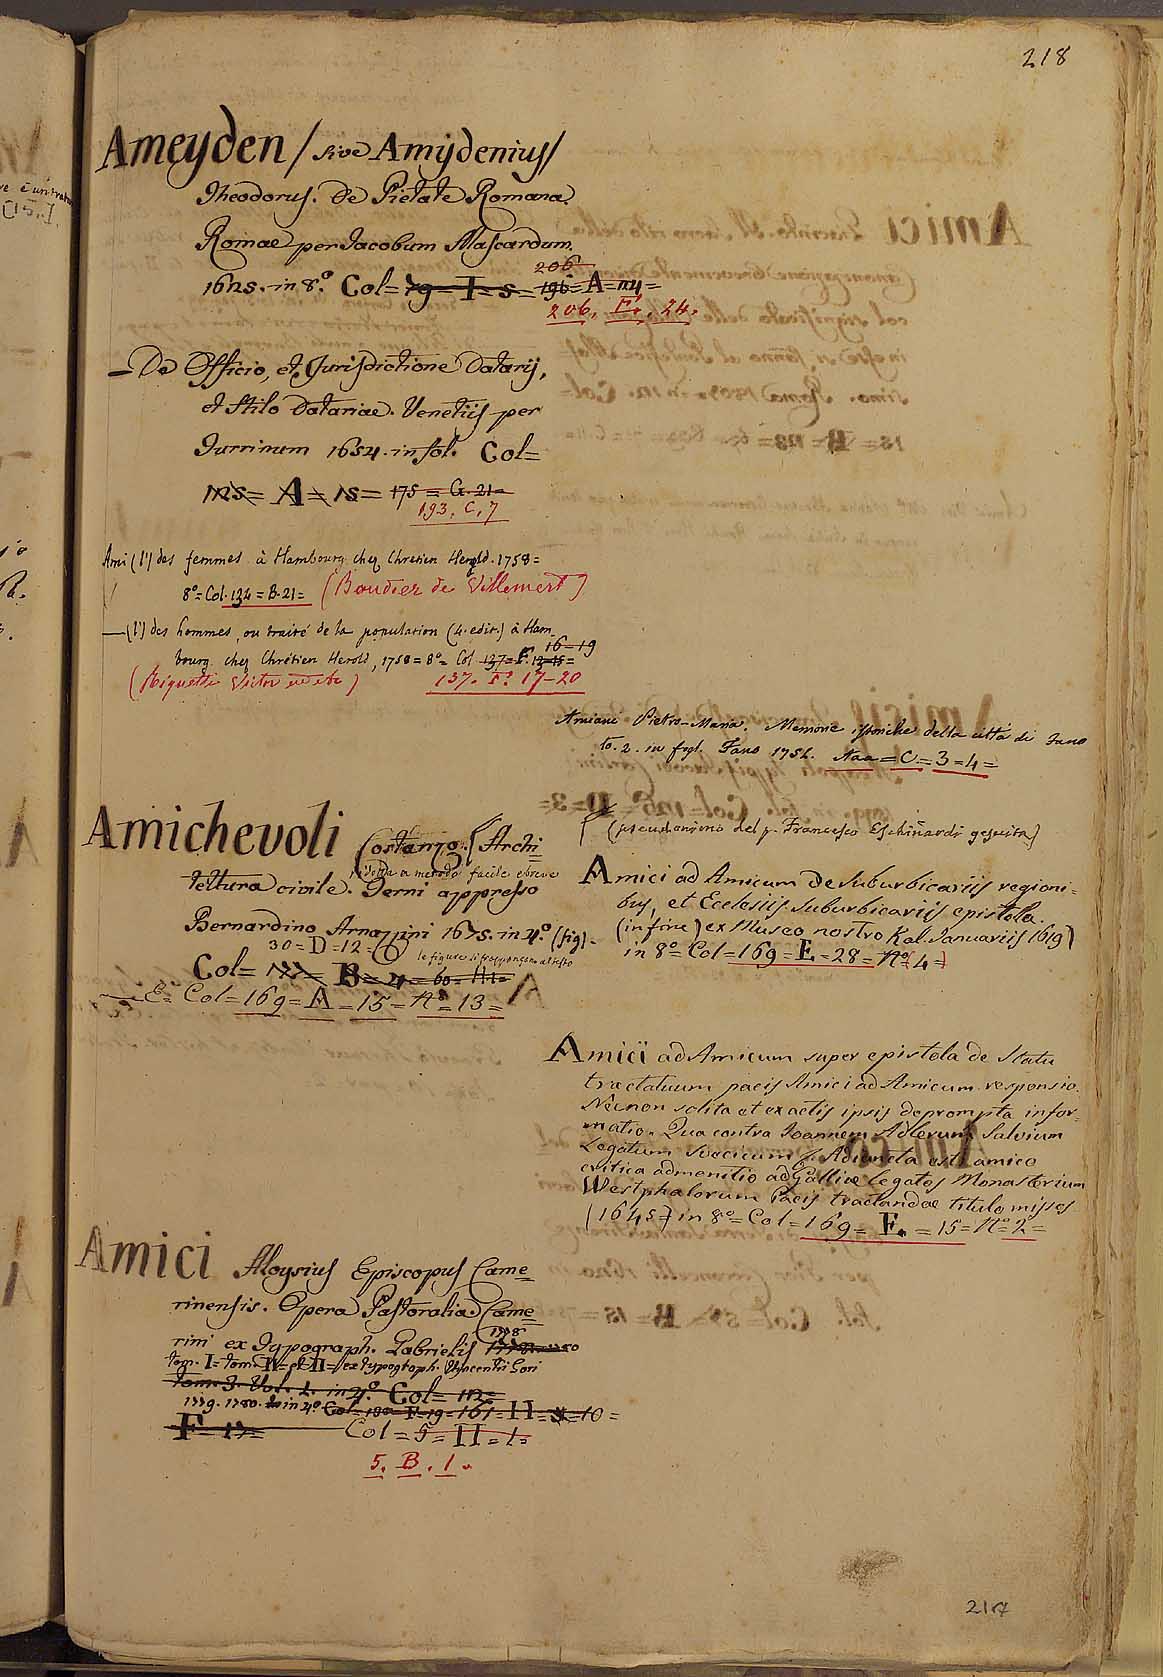 218
Ameyden / sive Amydenius /
Theodorus. De Pietate Romana.
Romae per Jacobum Mascardum.
1625. in 8.º Col= 79 = I = 5 = 196 = A = 24 =
206
206. F. 24.
— De Officio, et Jurisdictione Datarij,
et Stilo Datariae. Venetijs per
Turrinum 1654. in fol. Col=
125 = A = 15 = 175 = G. 21 =
193. C. 7
Ami (l') des femmes à Hambourg chez Chretien Herold. 1758 =
8º = Col. 134 = B. 21 = (Boudier de Villemert)
— (l') des hommes, ou traité de la population (4. edit.) à Ham
bourg chez Chrétien Herold, 1758 = 8º = Col 137 = F. 16-19
137. F. 17-20
Amiani Pietro-Maria. Memorie istoriche della città di Fano
to. 2. in fogl. Fano 1751. Aaa = C = 3 = 4 =
Amichevoli Costanzo. Archi=
ridotta a metodo facile e breve
tettura civile. Terni appresso
Bernardino Arnazzini 1675. in 4.º (fig) -
30 = D = 12 =
le figure si frappongono al testo
Col= B = 4 = 60 = H =
— E = Col = 169 = A = 15 = Nº = 13 =
(pseudonimo del p. Francesco Eschinardi gesuita)
Amici ad Amicum de Suburbicariis regioni=
bus, et Ecclesiis Suburbicariis epistola.
(in fine) ex Museo nostro Kal. Januariis 1619)
in 8º = Col = 169 = E = 28 = Nº = 4 =
Amici ad Amicum super epistola de Statu
tractatuum pacis Amici ad Amicum responsio.
Necnon solita et ex actis ipsis deprompta infor-
matio. Qua contra Joannem Adlerum Salvium
Legatum Suecicum &. Adiuncta est amico
critica admonitio ad Galliae legatos Monasterium
Westphalorum Pacis tractandae titulo missos
(1645) in 8º = Col = 169 = E. = 15 = Nº 2 =
Amici Aloysius Episcopus Came=
rinensis. Opera Pastoralia. Came=
1778
rini ex Typograph. Gabrielis
tom. I = tom. II = et II = / ex typograph. Vincentii Gori
tom. 3. Vol. 1. in 4.º Col=
1779. 1780. in 4º Col = 180 = F = 19 = 161 = H = 10 =
F = 17 = Col = 5 = H = 1 =
5. B. 1.
217